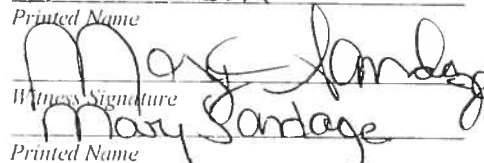 Printed Name
Mary Sandage
Witness Signature
Mary Sandage
Printed Name